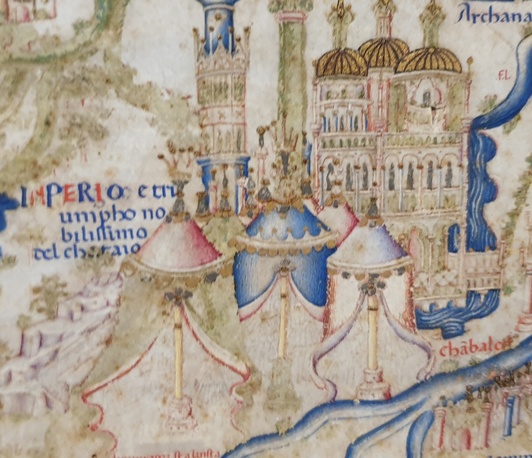 Archana
EL
IMPERIO: e tri
umpho no
bilissimo
del chataio
chãbalech